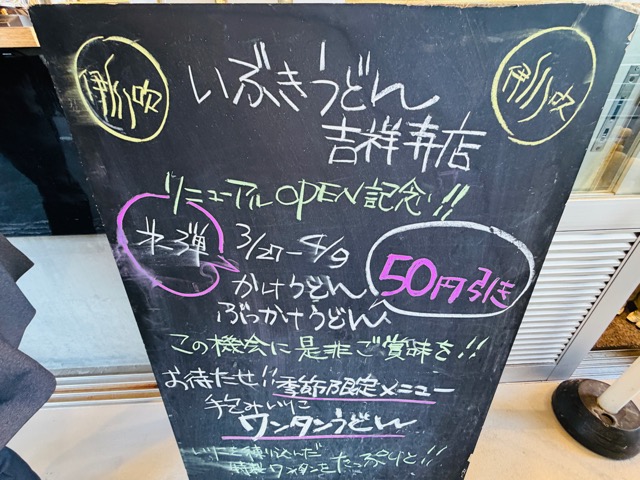 伊吹
いぶきうどん
伊吹
吉祥寺店
リニューアルOPEN記念!!
第二弾
3/27-4/9
かけうどん
ぶっかけうどん
50円引き
この機会に是非ご賞味を!!
お待たせ!!季節限定メニュー
手包みいりこ
ワンタンうどん
いりこを練り込んだ
特製ワンタンをたっぷりと!!